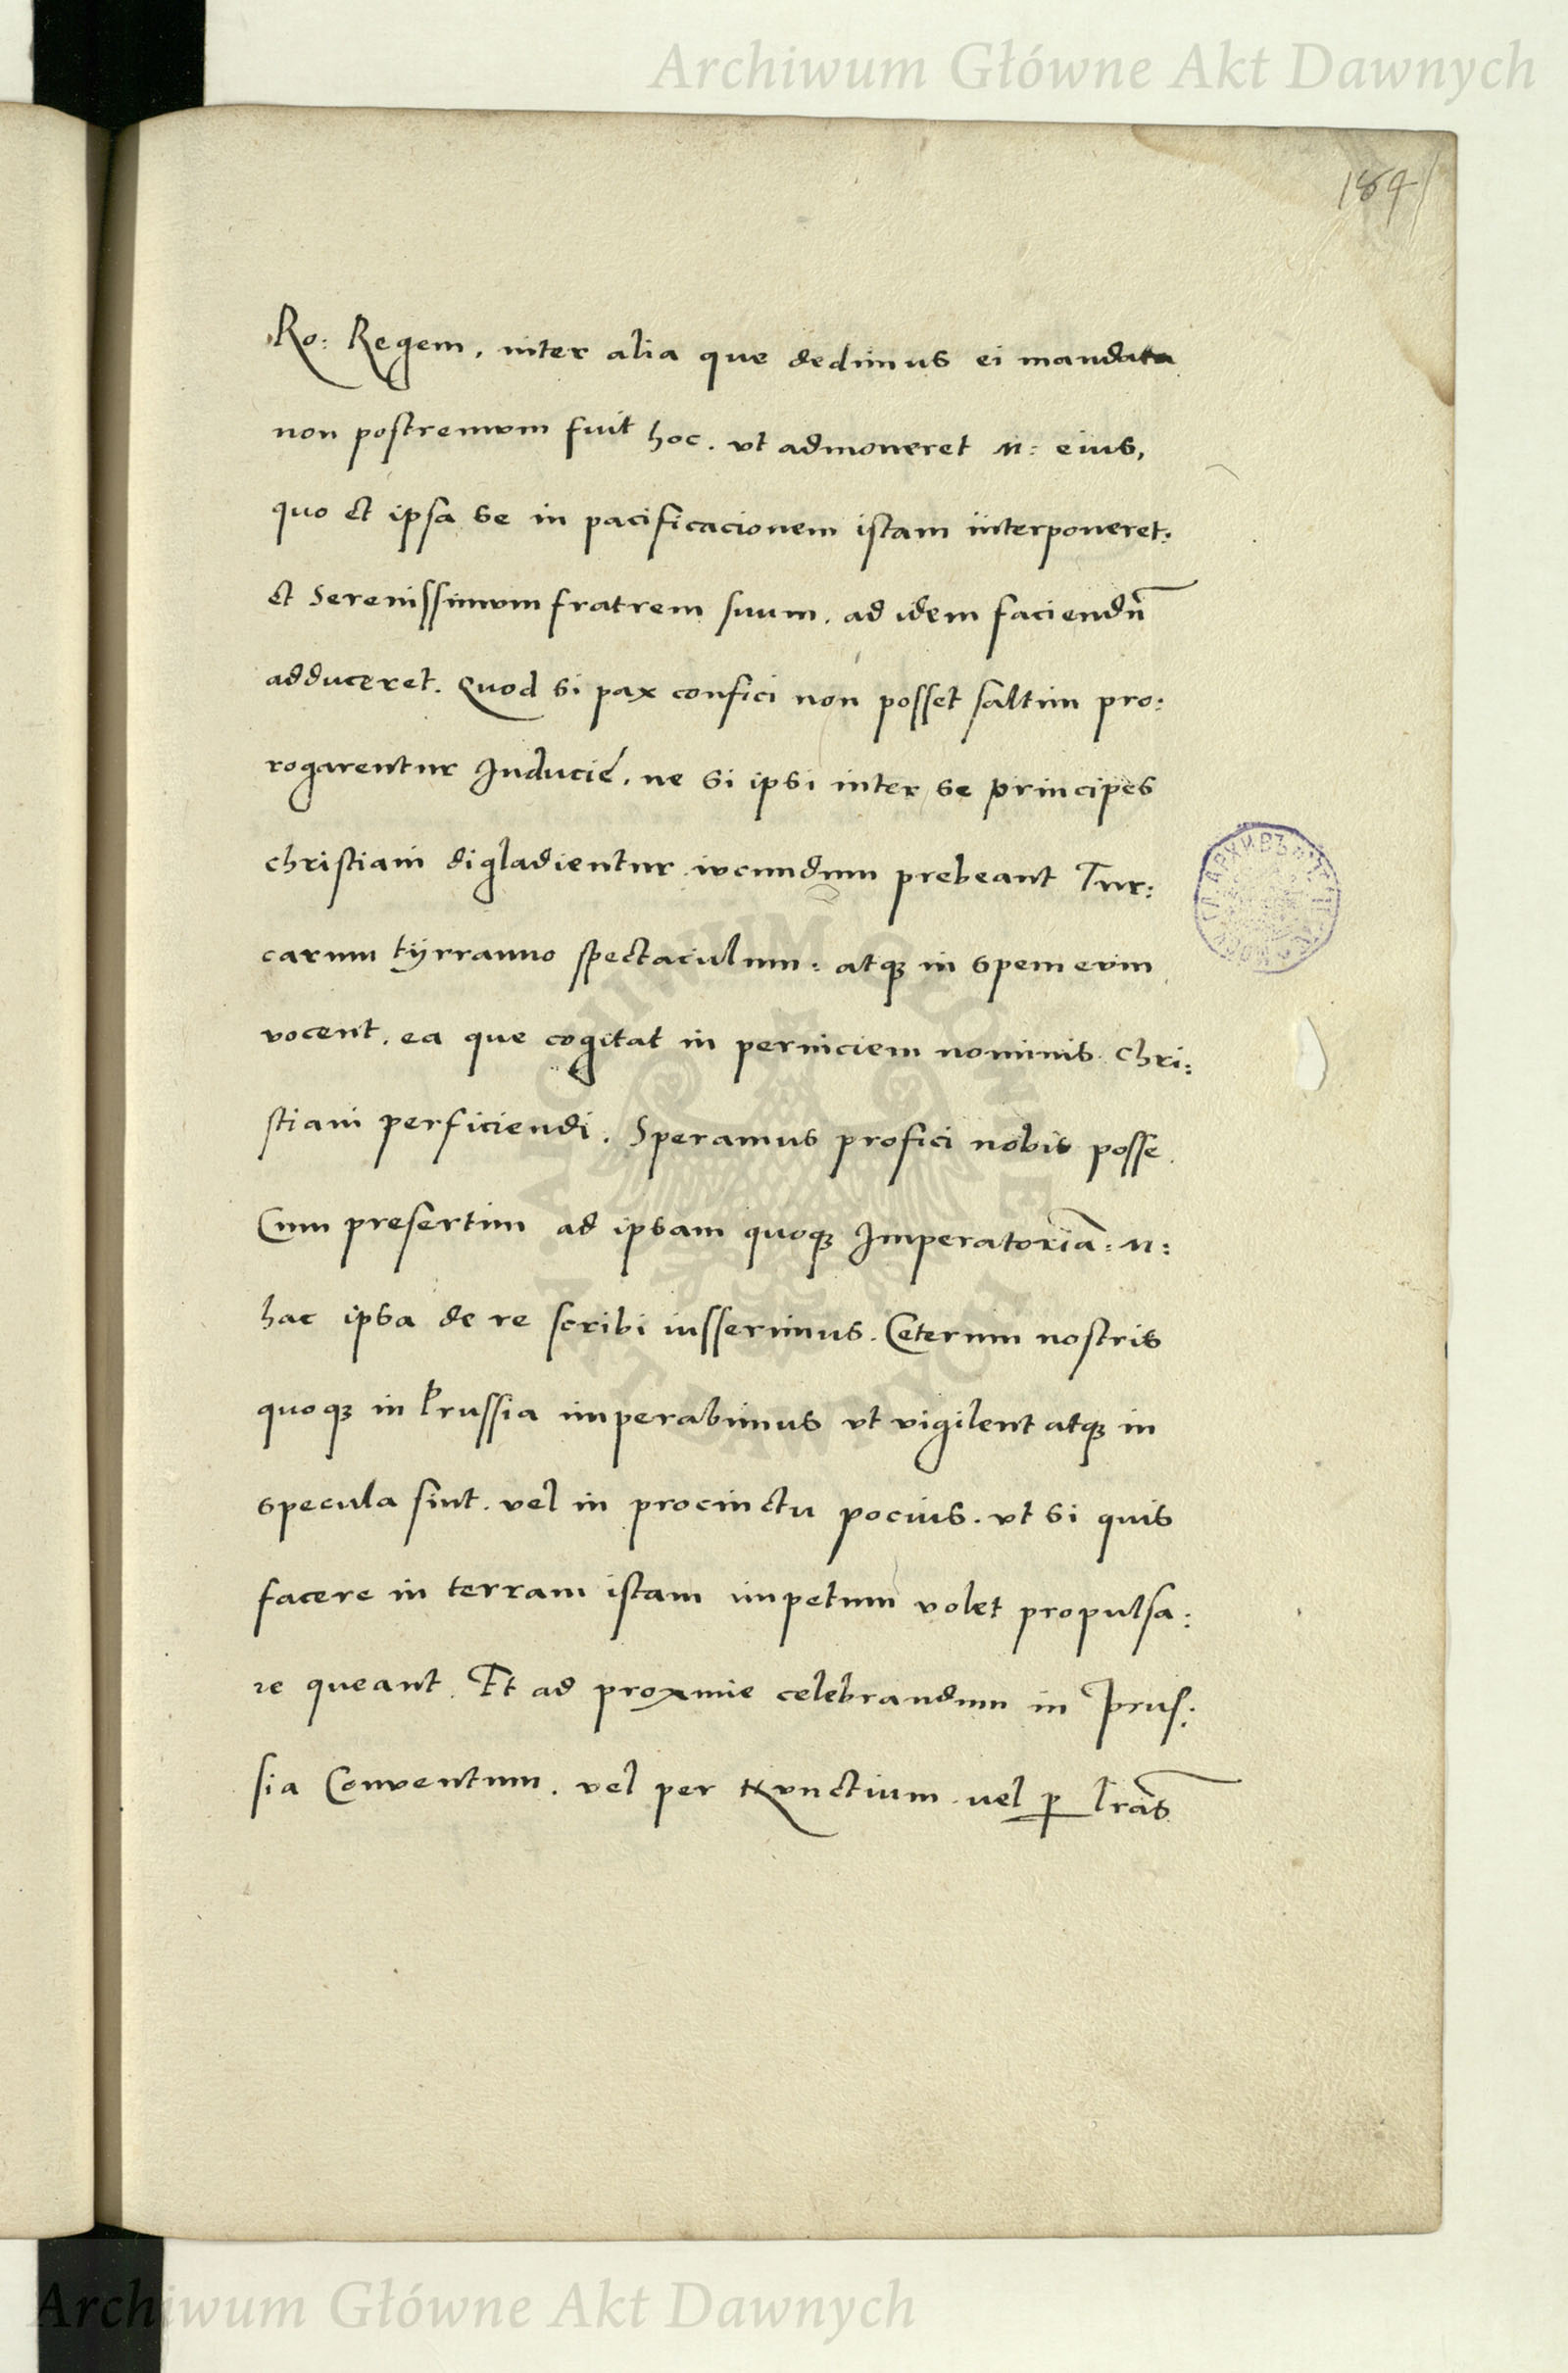 Archiwum Główne Akt Dawnych
Ro: Regem, inter alia que dedimus ei mandata
non postremum fuit hoc. vt admoneret M: eius,
quo et ipsa se in pacificacionem istam interponeret:
et Serenissimum fratrem suum, ad idem faciendu͞
adduceret. Quod si pax confici non posset saltim pro:
rogarentur Inducié, ne si ipsi inter se principes
christiani digladientur iucundum prebeant Tur:
carum tÿranno spectaculum: atqꝫ in spem eum
vocent, ea que cogitat in perniciem nominis Chri:
stiani perficiendi. Speramus profici nobis posse
Cum presertim ad ipsam quoqꝫ Imperatoria͞: M:
hac ipsa de re scribi iusserimus. Ceterum nostris
quoqꝫ in Prussia imperabimus vt vigilent atqꝫ in
specula sint. vel in procinctu pocius. vt si quis
facere in terram istam impetum volet propulsa:
re queant. Et ad proxime celebrandum in Prus:
sia Conventum. vel per Nunctium vel ꝑ l͞ras
ARCHIWUM GŁÓWNE AKT DAWNYCH
Archiwum Główne Akt Dawnych